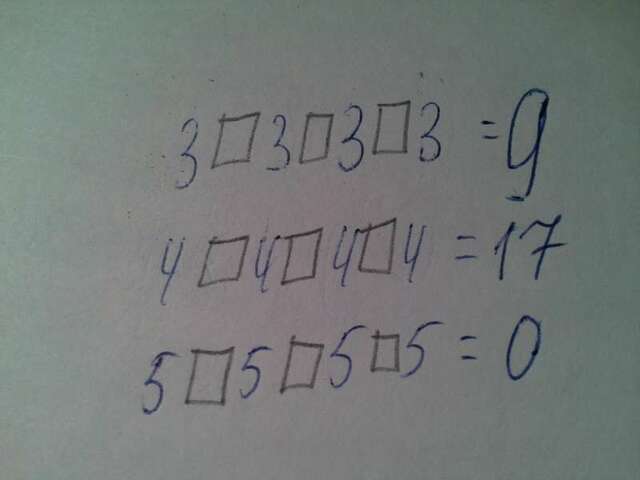 3 □ 3 □ 3 □ 3 = 9
4 □ 4 □ 4 □ 4 = 17
5 □ 5 □ 5 □ 5 = 0